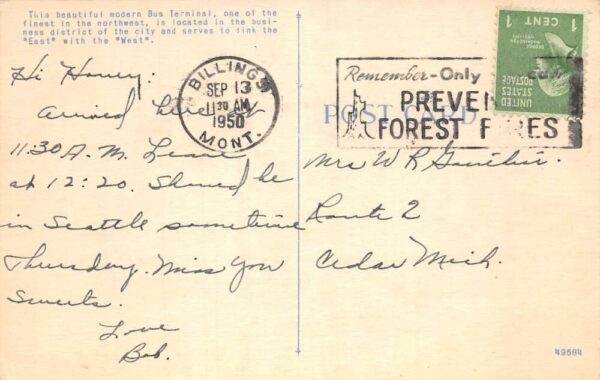 This beautiful modern Bus Terminal, one of the
finest in the northwest, is located in the busi-
ness district of the city and serves to link the
"East" with the "West".
Hi Honey:
Arrived here
11:30 A.M. Leave
at 12:20. Should be
in Seattle sometime
Thursday. Miss You
Sweets.
Love
Bob.
BILLINGS
SEP 13
11 30 AM
1950
MONT.
Remember - Only
PREVEN
FOREST FIRES
POST CARD
1 CENT 1
UNITED
STATES
POSTAGE
Mrs W R
Route 2
Cedar Mich.
49584